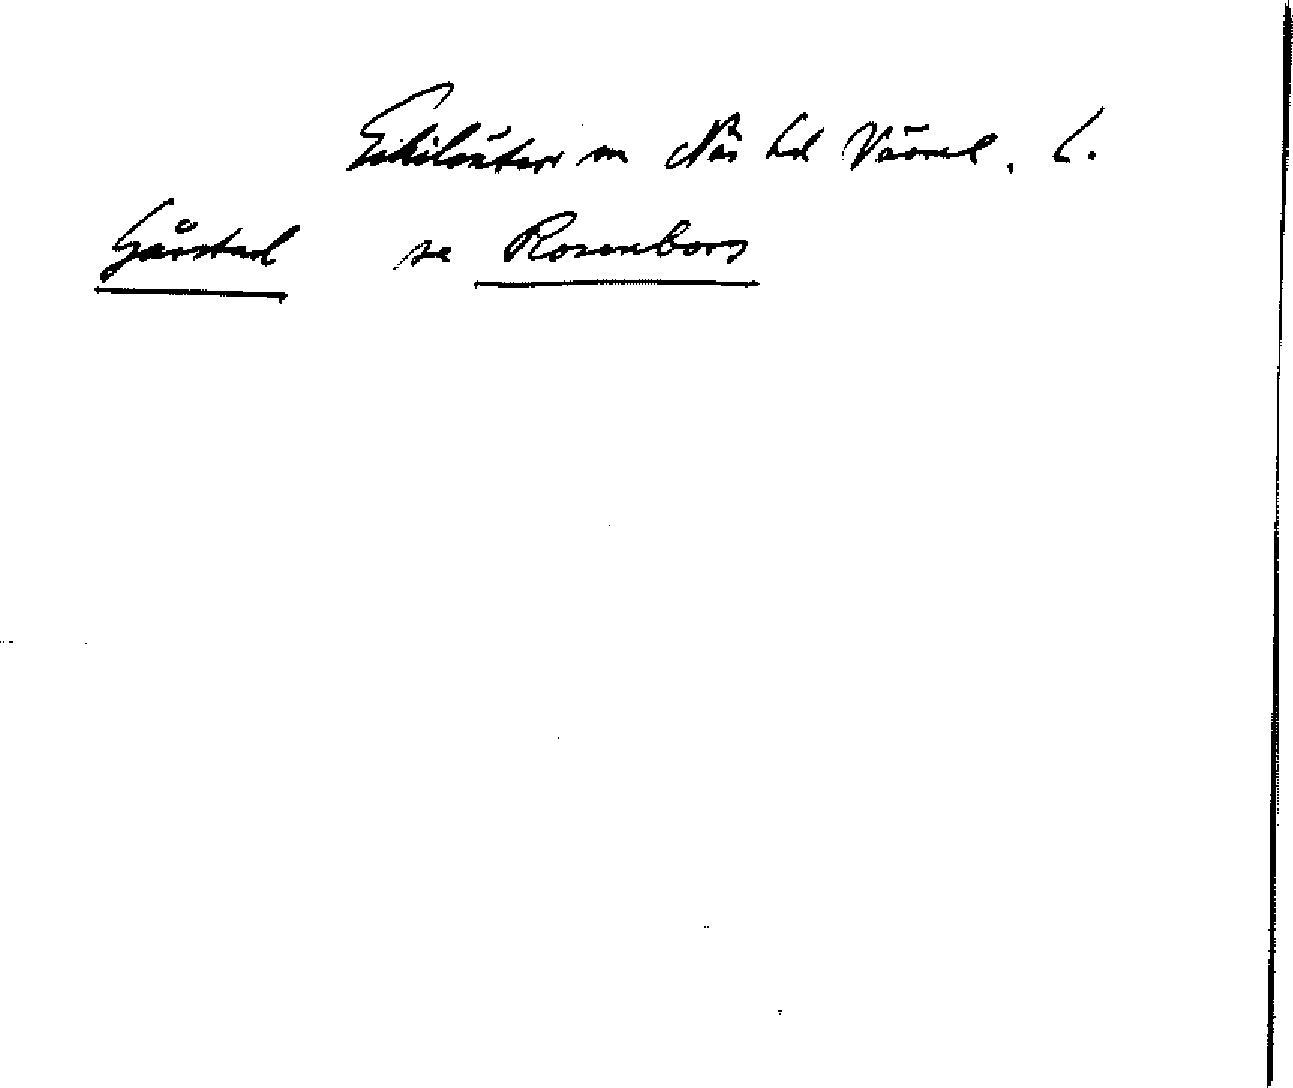 Eskilsäter sn Näs hd Värml. L.
Gårstad se Rosenborg